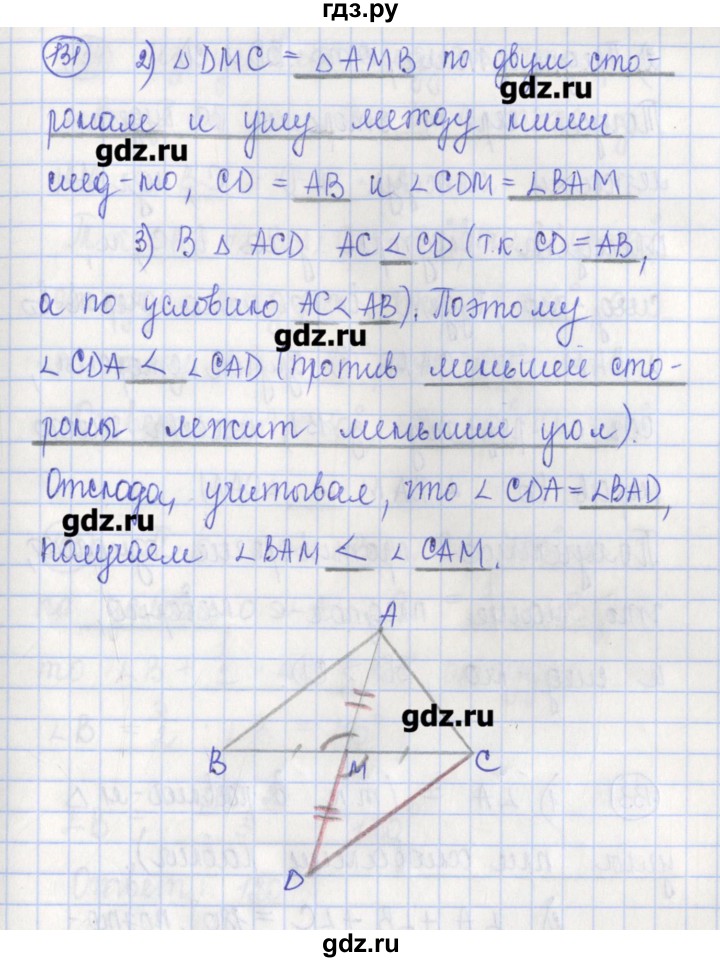 гдз.ру
131 2) △ DMC = △ AMB по двум сто-
gdz.ru
ронам и углу между ними
gdz.ru
след-но, CD = AB и ∠CDM = ∠BAM
3) В △ ACD AC < CD (т.к. CD = AB,
а по условию AC < AB). Поэтому
gdz.ru
∠ CDA < ∠CAD (против меньшей сто-
роны лежит меньший угол).
Отсюда, учитывая, что ∠ CDA = ∠BAD,
gdz.ru
получаем ∠BAM < ∠ CAM.
A
gdz.ru
B M C
D
gdz.ru